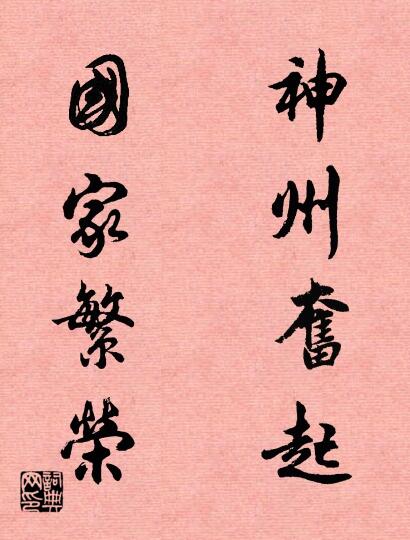 神州奮起
國家繁榮
詞典網印